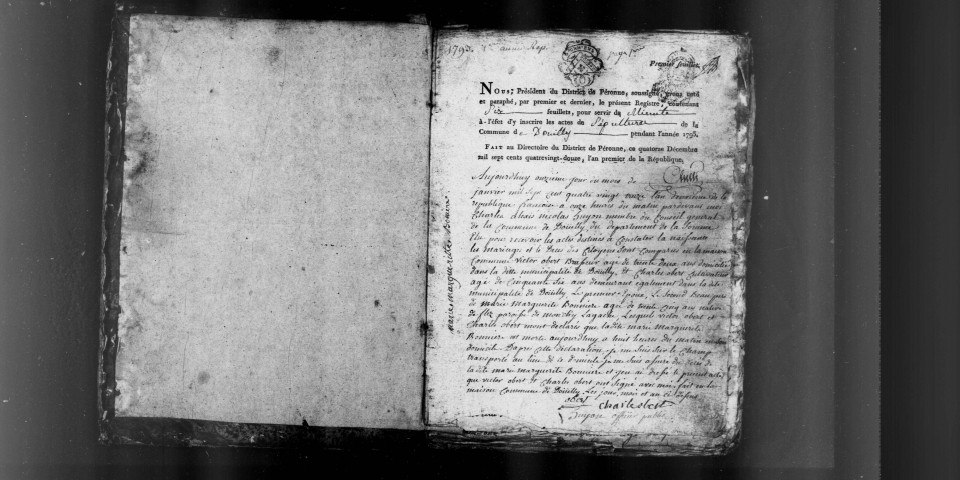 1793.
Premier feuillet.
NOUS, Président du District de Péronne, soussigné, avons coté
et paraphé, par premier et dernier, le présent Registre, contenant
Six feuillets, pour servir de Minute
à l'effet d'y inscrire les actes de Sépulture de la
Commune de Douilly pendant l'année 1793.
FAIT au Directoire du District de Péronne, ce quatorze Décembre
mil sept cents quatrevingt-douze, l'an premier de la République.
Marie margueritte Bonniere
Aujourdhuy onzieme jour du mois de
janvier mil sept cent quatre vingt treize l'an deuxieme de la
republique francoise a onze heures du matin pardevant moi
Charles Nicolas Guyon membre du Conseil general
de la Commune de Douilly, du departement de la Somme
Elu pour recevoir les actes destinés a Constater la naissance
les mariages et le Deces des Citoyens Sont Comparus en la maison
Commune Victor obert Brasseur agé de trente deux ans domicilié
dans la ditte municipalité de Douilly, et Charles obert Cultivateur
agé de Cinquante Six ans demeurant egalement dans la dite
municipalité de Douilly Le premier Epoux, Le Second Beau pere
de marie Marguerite Bonniere agée de trente Cinq ans native
de paroisse de monchy Lagache, Lesquels victor obert et
Charle obert mont declarés que la dite marie Marguerite
Bonniere est morte aujourdhuy a huit heures du matin en son
domicile D'apres cette declaration je me Suis Sur le Champ
transporté au lieu de ce domicile je me Suis assuré du deces de
la dite marie marguerite Bonniere et j'en ai dressé le present acte
que victor obert et Charles obert ont Signé avec moi, fait en la
maison Commune de Douilly Les jour, mois et an Ci dessus
obert
Charle obert
Guyon officier public